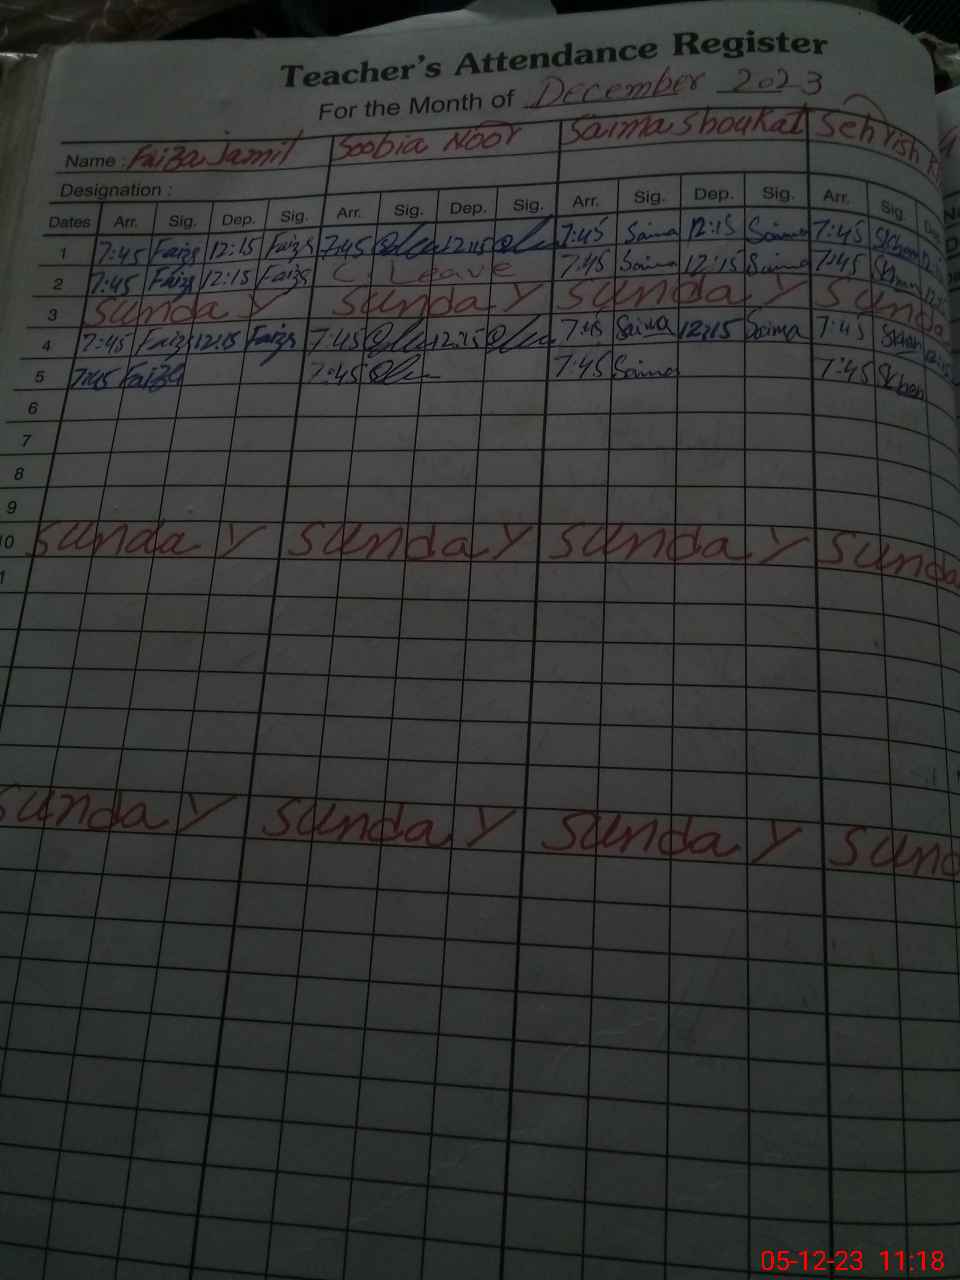 Teacher's Attendance Register
For the Month of December 2023
Name : Faiza Jamil Soobia Noor Saima Shoukat Sehrish
Designation :
Dates Arr. Sig. Dep. Sig. Arr. Sig. Dep. Sig. Arr. Sig. Dep. Sig. Arr. Sig.
1 7:45 Faiza 12:15 Faiza 7:45 12:15 7:45 Saima 12:15 Saima 7:45
2 7:45 Faiza 12:15 Faiza C. Leave 7:45 Saima 12:15 Saima 7:45
3 Sunday Sunday Sunday Sunda
4 7:45 Faiza 12:15 Faiza 7:45 12:15 7:45 Saima 12:15 Saima 7:45
5 7:45 Faiza 7:45 7:45 Saima 7:45
6
7
8
9
10 Sunday Sunday Sunday Sunda
Sunday Sunday Sunday Sund
05-12-23 11:18